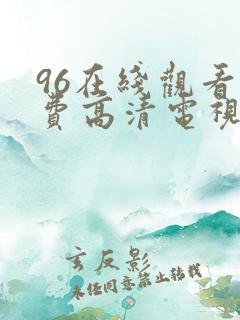 96在綫觀看
費高清電視
玄反影
未经同意禁止转载